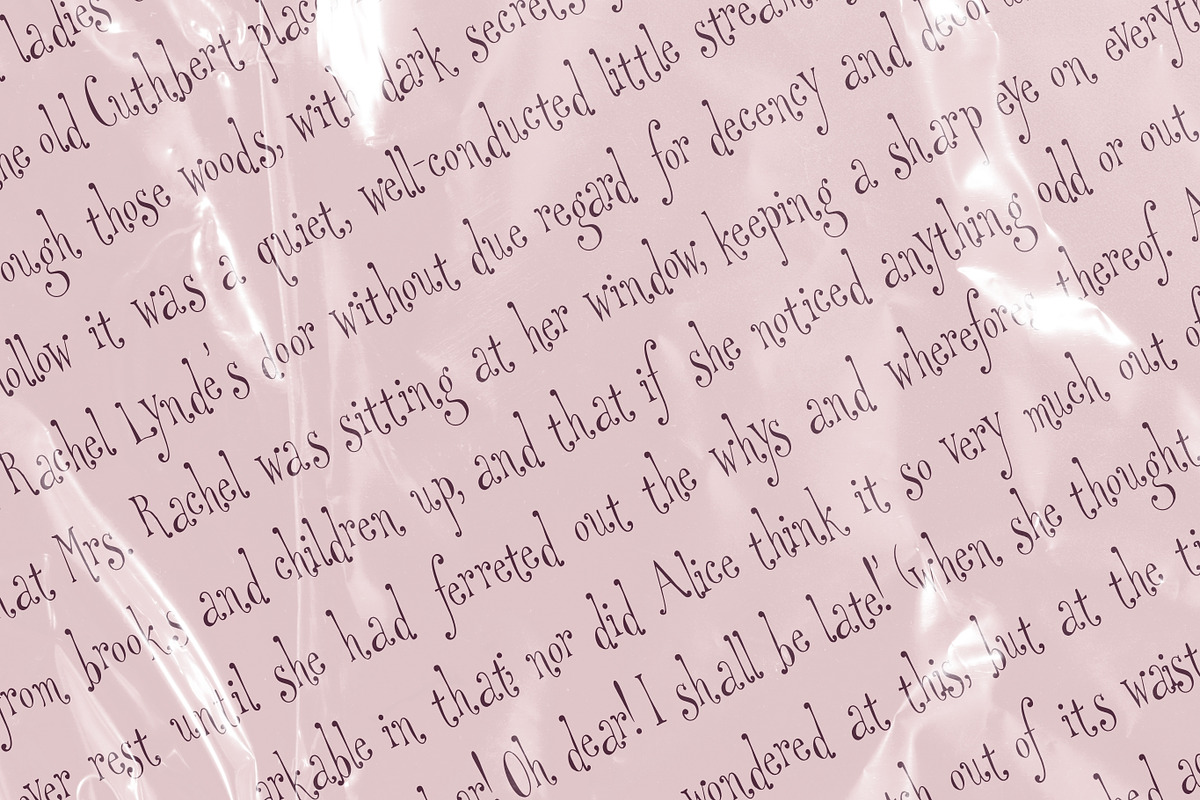 ladies
he old Cuthbert plac
ough those woods, with dark secrets
hollow it was a quiet, well-conducted little stream
Rachel Lynde's door without due regard for decency and decor
hat Mrs. Rachel was sitting at her window, keeping a sharp eye on everyt
from brooks and children up, and that if she noticed anything odd or out
ever rest until she had ferreted out the whys and wherefores thereof. A
arkable in that; nor did Alice think it so very much out o
ear! Oh dear! I shall be late!' (when she thought
wondered at this, but at the ti
out of its waist